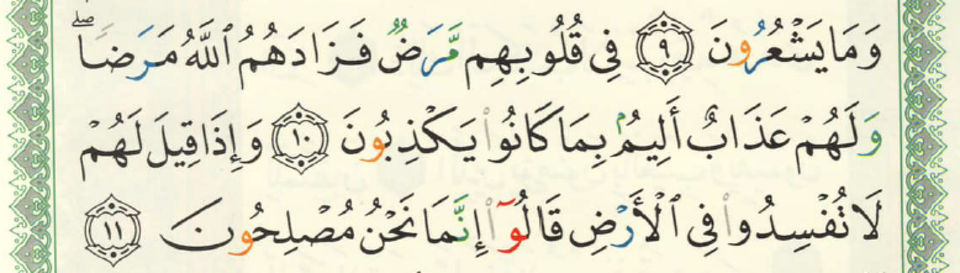 وَمَا يَشْعُرُونَ ٩ فِي قُلُوبِهِم مَّرَضٌ فَزَادَهُمُ ٱللَّهُ مَرَضًاۖ
وَلَهُمْ عَذَابٌ أَلِيمُۢ بِمَا كَانُوا۟ يَكْذِبُونَ ١٠ وَإِذَا قِيلَ لَهُمْ
لَا تُفْسِدُوا۟ فِي ٱلْأَرْضِ قَالُوٓا۟ إِنَّمَا نَحْنُ مُصْلِحُونَ ١١